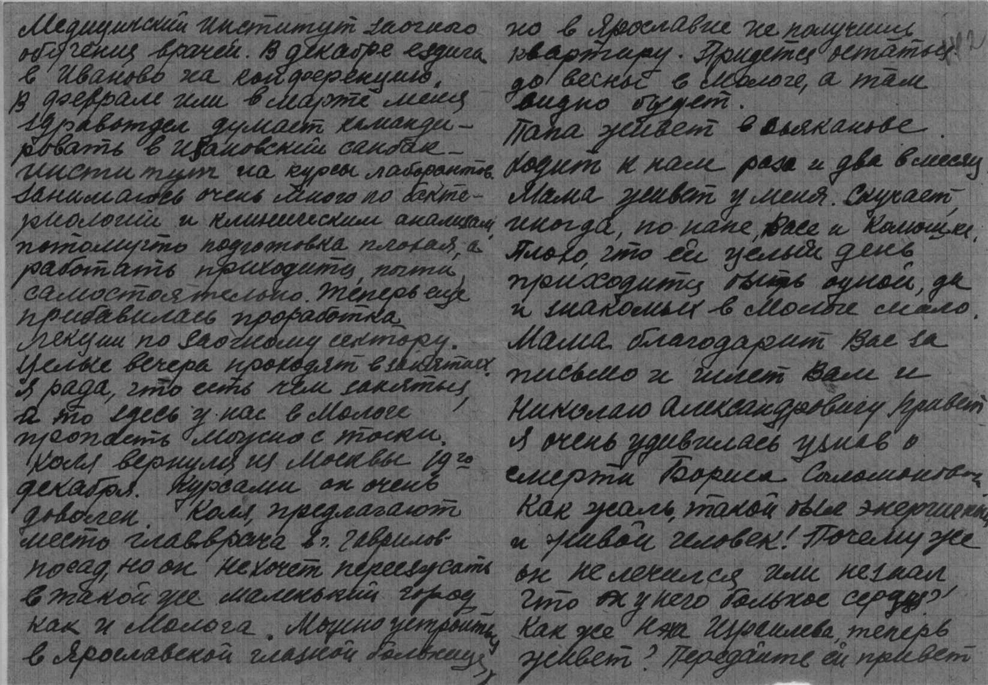 Медицинский Институт заочного
обучения врачей. В декабре ездила
в Иваново на конференцию.
В феврале или в марте меня
здравотдел думает команди-
ровать в Ивановский санбак-
институт на курсы лаборантов.
Занимаюсь очень много по бакте-
риологии и клиническим анализам
потому что подготовка плохая, а
работать приходится, почти,
самостоятельно. Теперь еще
прибавилась проработка
лекций по заочному сектору.
Целые вечера проходят в занятиях.
Я рада, что есть чем заняться,
а то здесь у нас в Мологе
пропасть можно с тоски.
Коля вернулся из Москвы 19го
декабря. Курсами он очень
доволен. Коле, предлагают
место главврача в г. Гаврилов-
посад, но он не хочет переезжать
в такой же маленький город
как и Молога. Можно устроиться
в Ярославской глазной больнице,
но в Ярославле не получишь
квартиру. Придется остаться
до весны в Мологе, а там
видно будет.
Папа живет в
Ходит к нам раза и два в месяц.
Мама живет у меня. Скучает,
иногда, по папе, Васе и
Плохо, что ей целый день
приходится быть одной, да
и знакомых в Мологе мало.
Мама благодарит Вас за
письмо и шлет Вам и
Николаю Александровичу привет.
Я очень удивилась узнав о
смерти Бориса Соломоновича
Как жаль, такой был энергичный
и живой человек! Почему же
он не лечился или не знал,
что у него больное сердце?!
Как же теперь
живет? Передайте ей привет